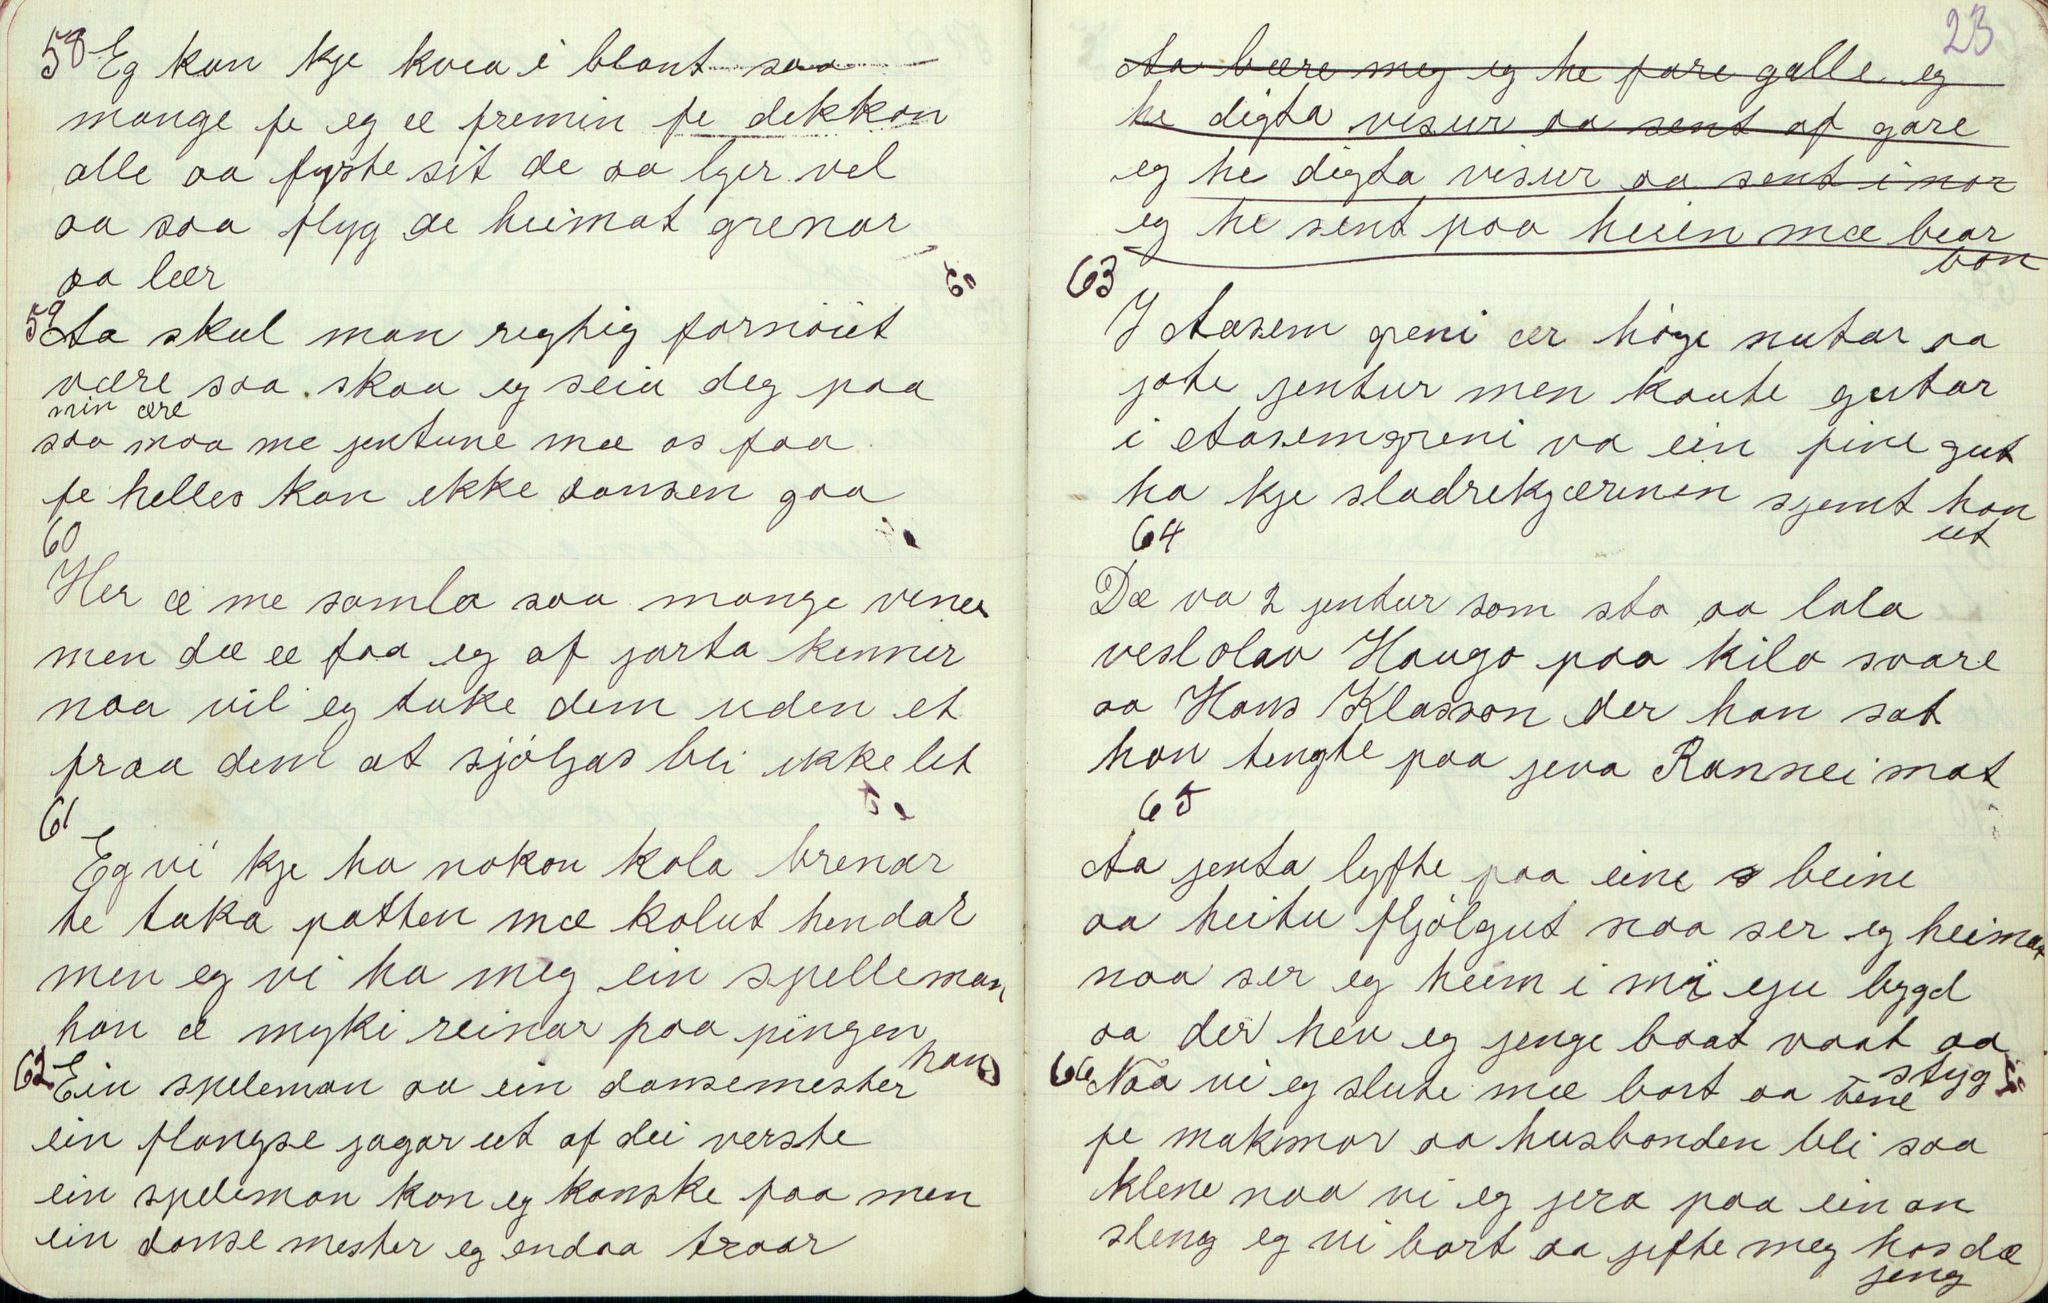 58 Eg kan kje kvea i blant saa
mange fe eg æ fremin fe dekkan
alle aa fyste sit de aa lyer vel
aa saa flyg de heimat grenar
aa lær
59 Aa skul man regtig fornöiet
være saa skaa eg seia deg paa
min ære
saa maa me jentune mæ os faa
fe helles kan ikke dansen gaa
60
Her æ me samla saa mange vener
men dæ æ faa eg af jarta kenner
naa vil eg take dem uden et
fraa dem at skjöljas bli ikke let
61
Eg vi kje ha nokon kola brenar
te taka patten mæ kolut hendar
men eg vi ha meg ein spelleman
han æ myki reinar paa pingen
han
62 Ein speleman aa ein dansemester
ein flangse jagar ut af dei verste
ein speleman kan eg kanske faa men
ein danse mester eg endaa traar
23
Aa bære meg eg he fare galle eg
he digta visur aa sent af gare
eg he digta visur aa sent i nor
eg he sent paa heien mæ bear
bon
63
I Aasem greni ær höge nutar aa
jote jentur men kaute gutar
i Aasemgreni va ein fine gut
ha kje sladrekjæreren sjemt han
ut
64
Dæ va 2 jentur som sto aa lala
veslolav Haugo paa kilo svare
aa Hans Klasson der han sat
han tengte paa jeva Rannei mat
65
Aa jenta lyfte paa eine beine
aa heitu fljölgut naa ser eg heimat
naa ser eg heim i mi eju bygd
aa der hev eg jenge baat vaat aa
styg
66 Naa vi eg slute mæ bort aa tene
fe makmor aa husbonden bli saa
klene naa vi eg jera paa ein an
sleng eg vi bort aa jifte meg hos dæ
jeng